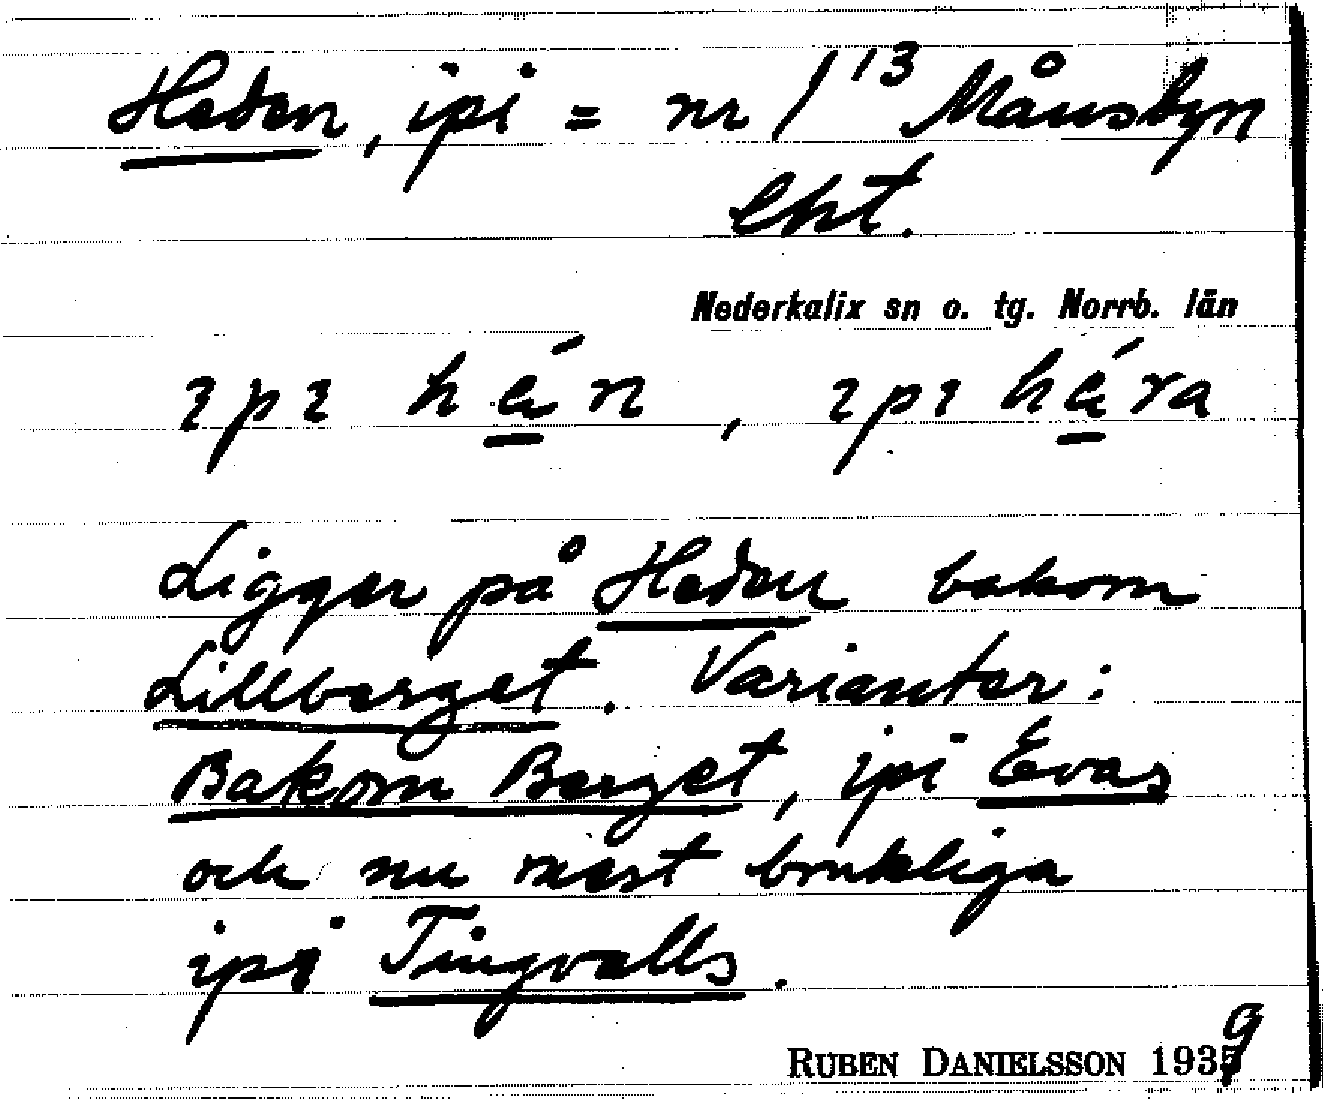 Heden, ipi = nr 1/13 Månsbyn
ekt.
Nederkalix sn o. tg. Norrb. län
ɩpɩ hén, ɩpɩ héra
Ligger på Heden bakom
Lillberget. Varianter:
Bakom Berget, ipi Evas
och nu mest brukliga
ipi Tingvalls.
RUBEN DANIELSSON 1939